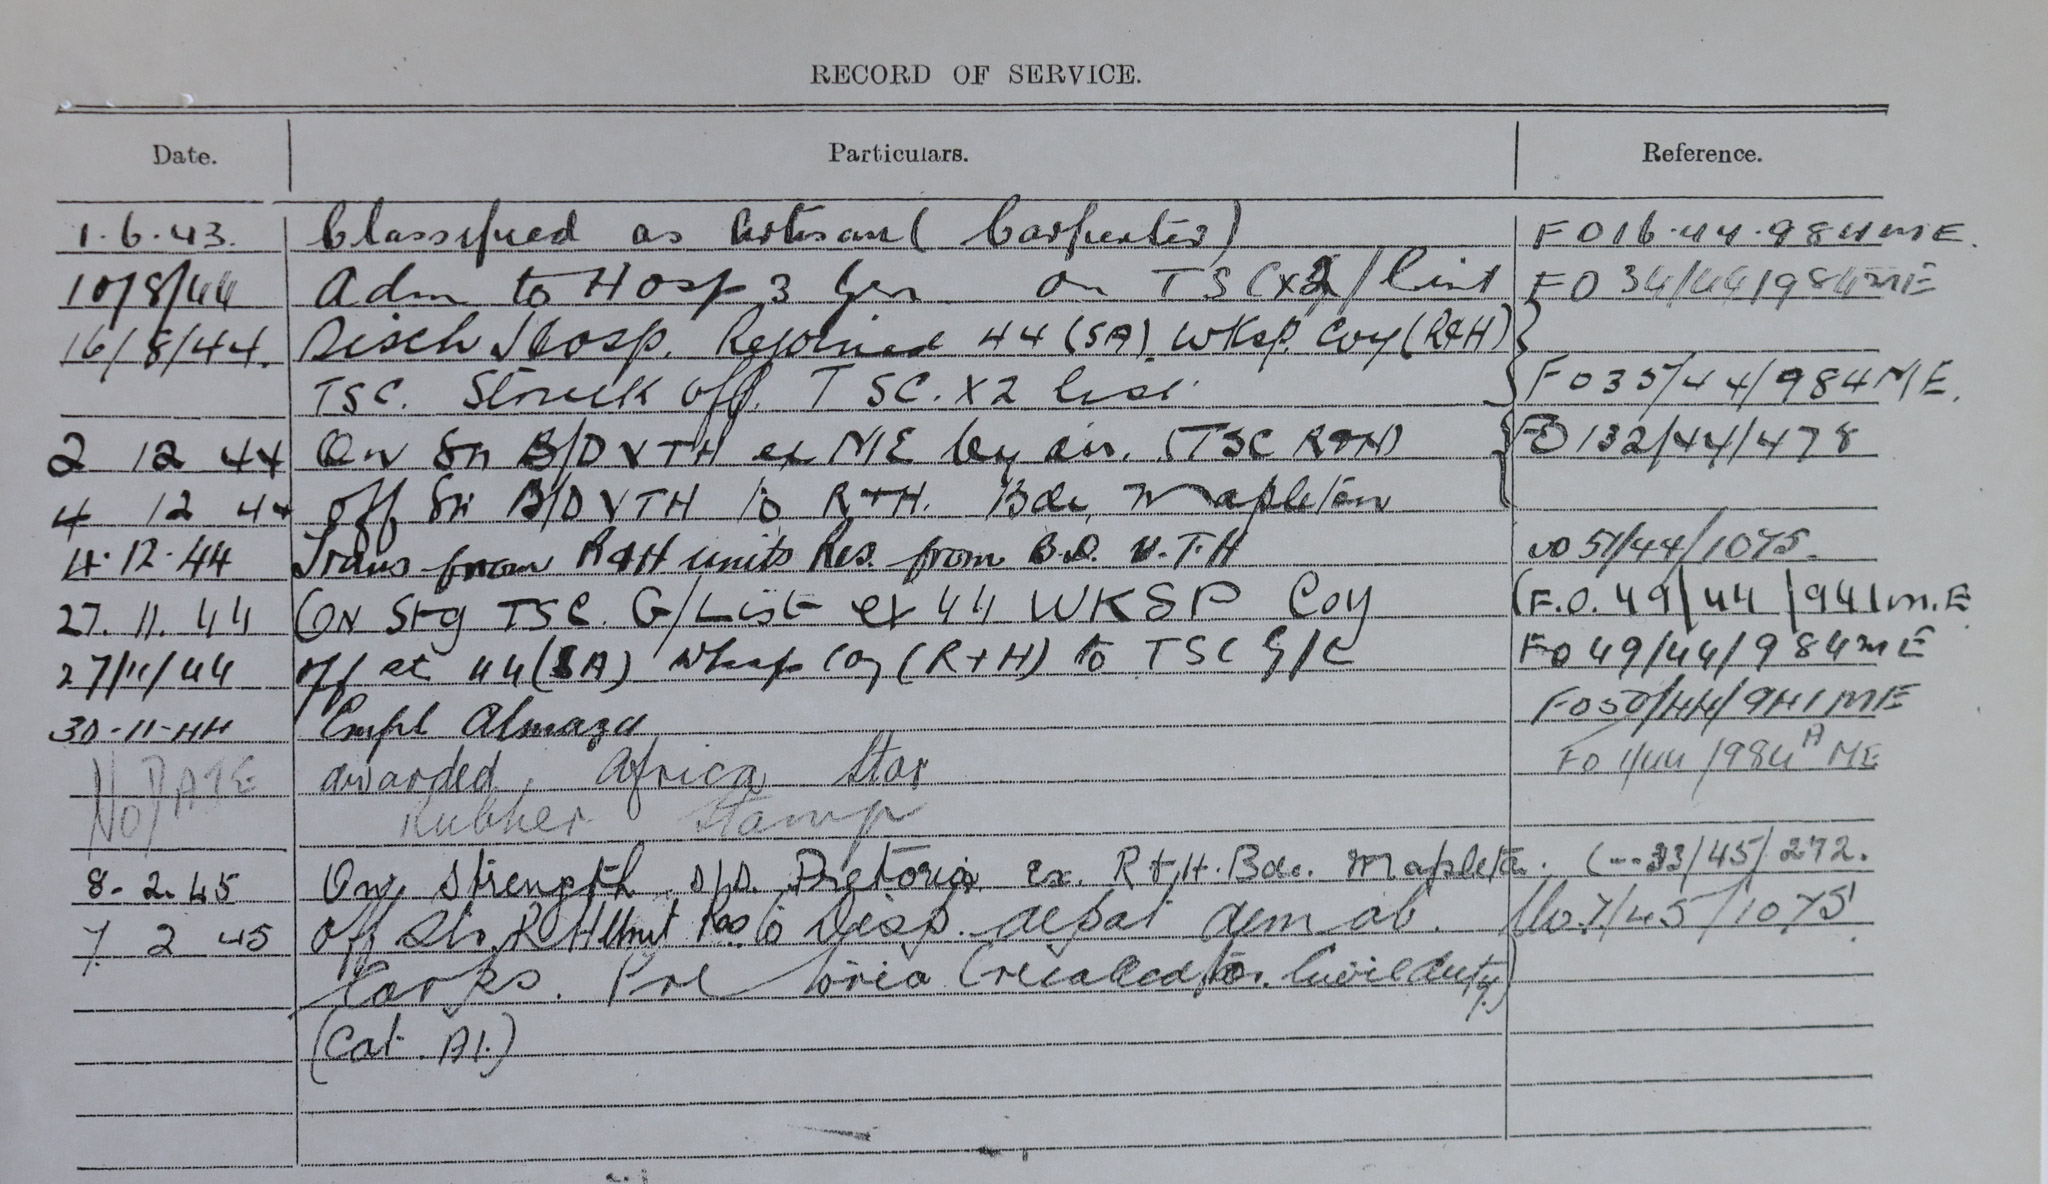 RECORD OF SERVICE.
Date. Particulars. Reference.
1.6.43. Classified as Artisan (Carpenter) FO16.44.984ME.
10/8/44 Adm to Hosp 3 Gen on TSC X2/list FO 34/44/984ME
16/8/44. Disch Hosp. Rejoined 44 (SA). WKsp. Coy (R&H)
TSC. Struck off. TSC. X2 list FO35/44/984ME.
2 12 44 On Str B/D VTH ex ME by air. (TSC R+H) FO 132/44/478
4 12 44 off Str B/D VTH to R+H. Bde, Mapleton
4.12.44 Trans from R&H units Res. from B.D. V.T.H 51/44/1075.
27.11.44 On Stg TSC. G/List ex 44 WKSP Coy (F.O. 49/44/941M.E
27/11/44 off st 44 (SA) Wksp Coy (R+H) to TSC G/L FO 49/44/984ME
30-11-44 Empl Almaza FO50/44/941ME
NO DATE awarded Africa Star FO 1/44/984 A ME
Rubber Stamp
8.2.45 On Strength D/D. Pretoria ex. R+H. Bde. Mapleton. (--33/45/272.
7. 2 45 Off Str. R H Unit Res to Disp. depot dem ab. 7/45/1075
Pretoria (released for Civil duty)
(Cat. A1.)